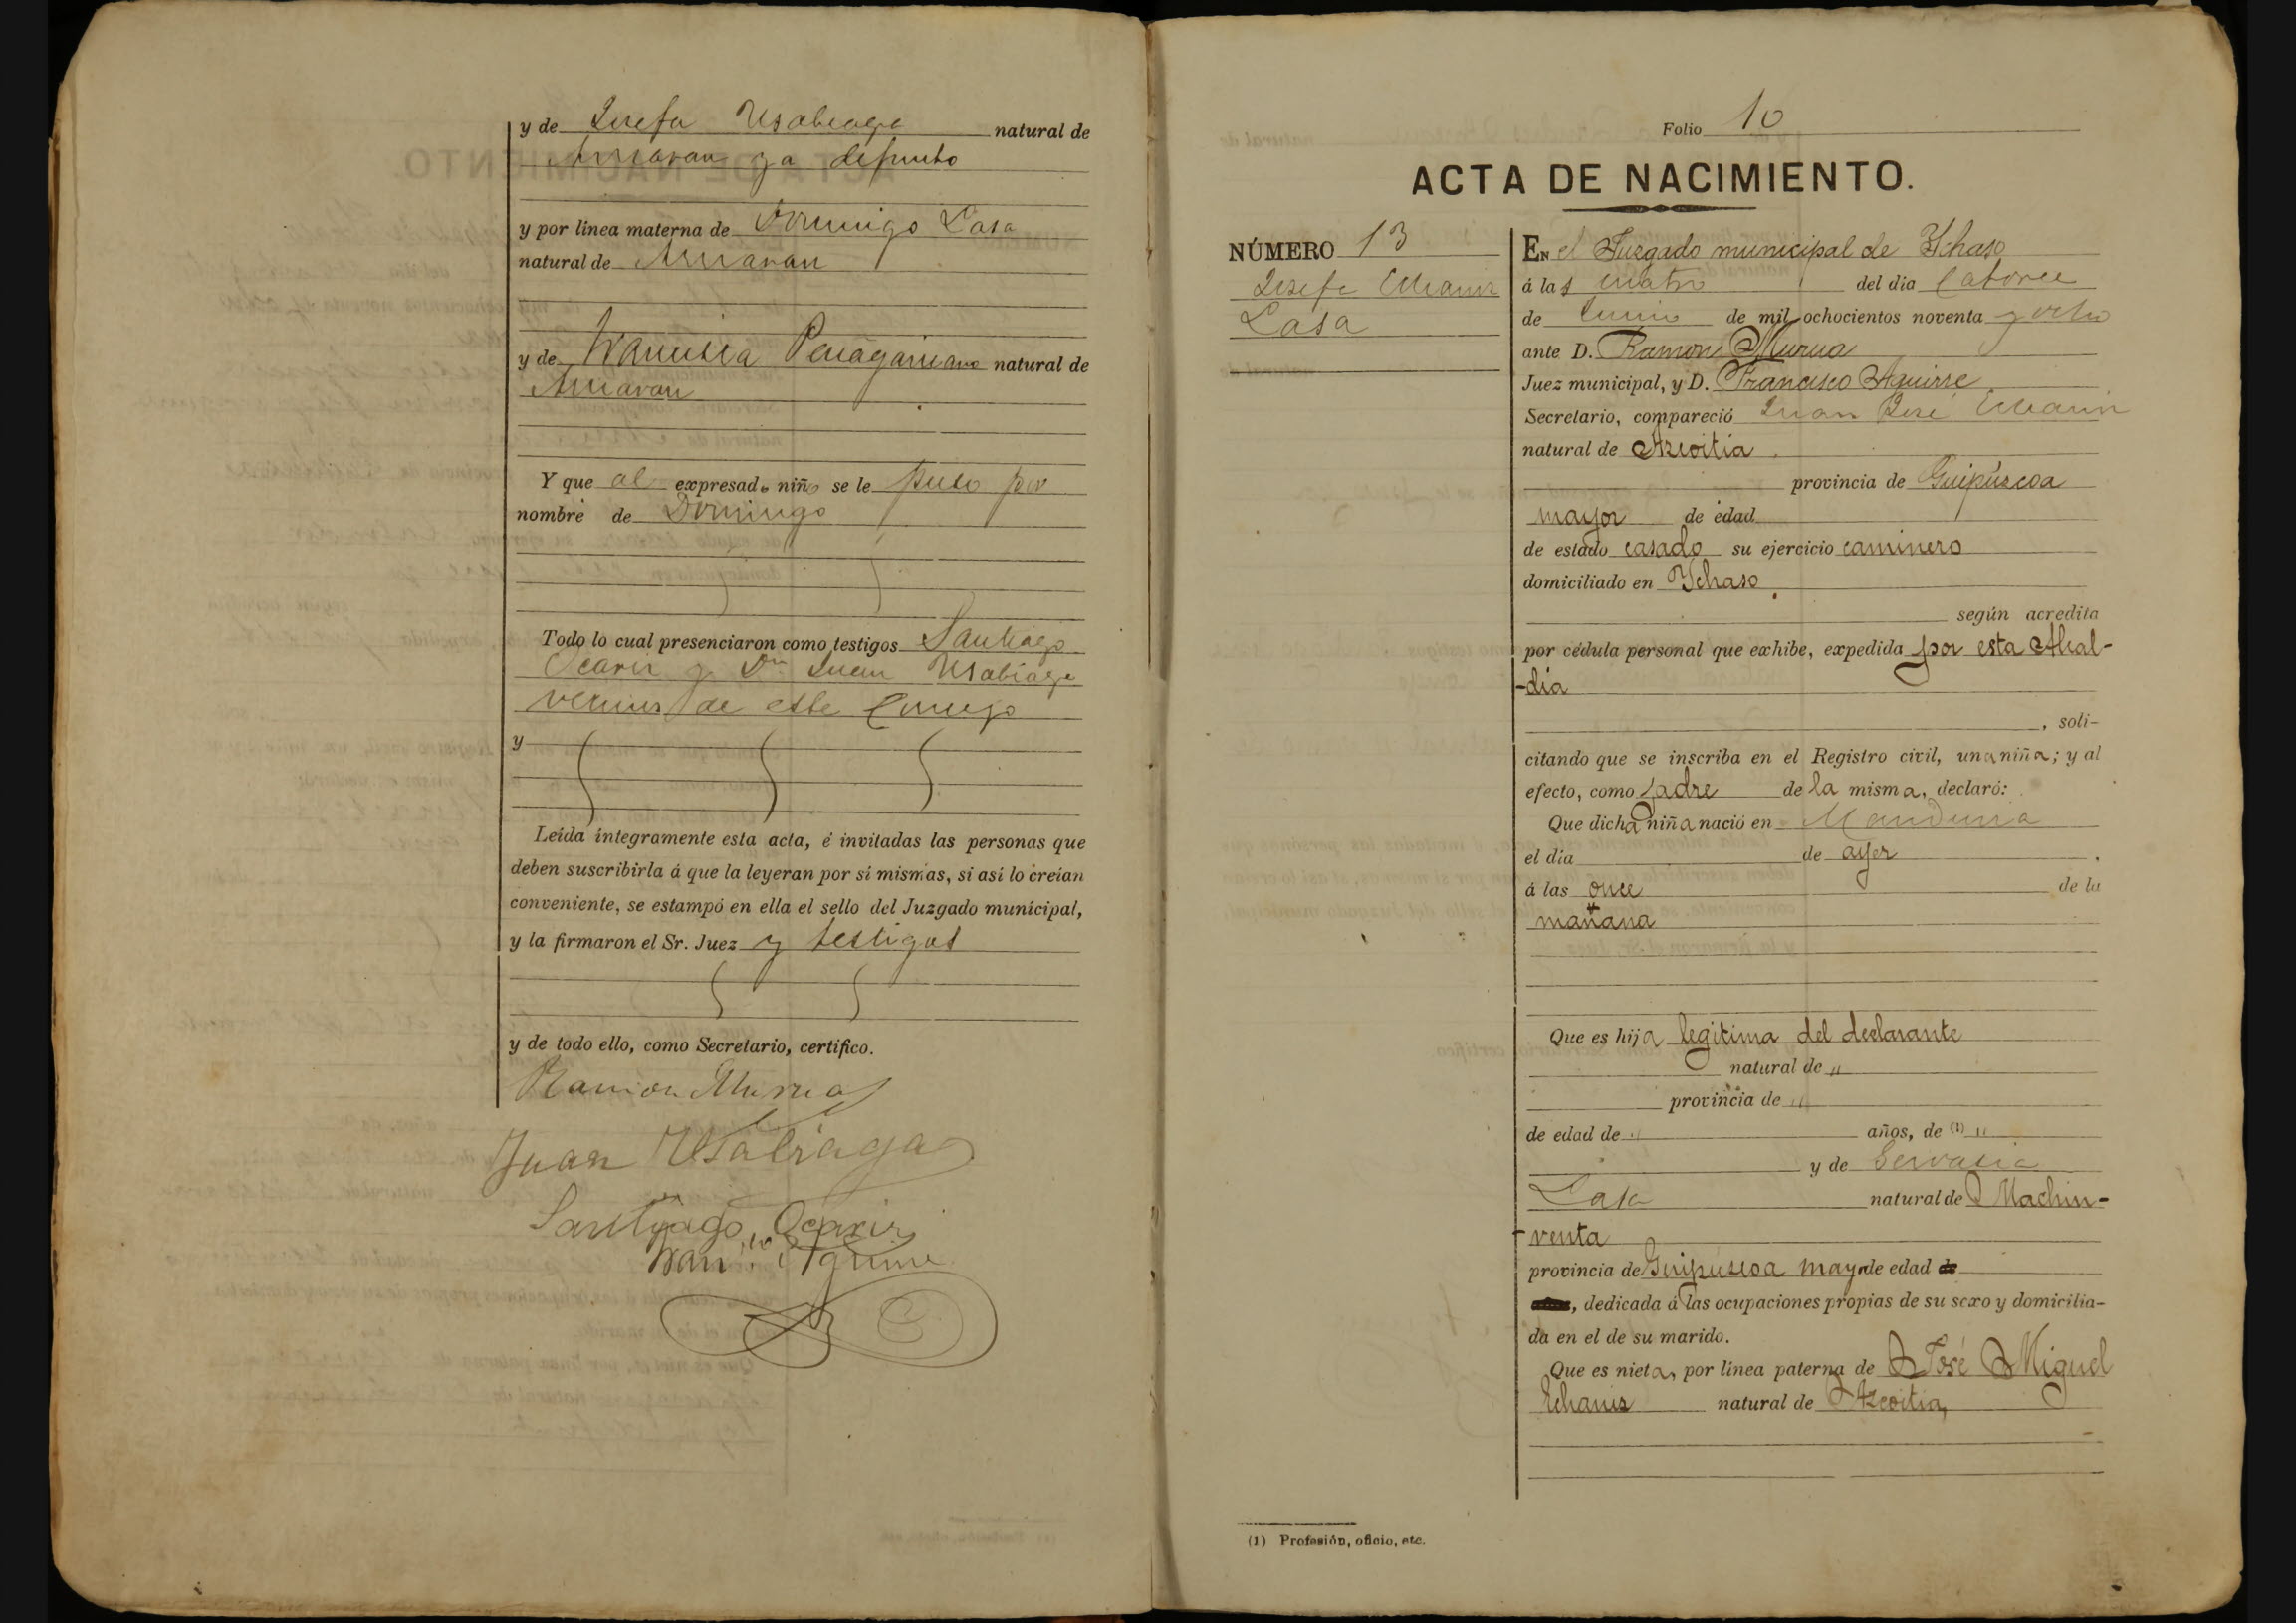 y de Josefa Usabiaga natural de
Arriaran ya difunto
y por línea materna de Domingo Lasa
natural de Arriaran
y de Francisca Peñagaricano natural de
Arriaran
Y que al expresado niño se le puso por
nombre de Domingo
Todo lo cual presenciaron como testigos Santiago
Ocariz y Dn Juan Usabiaga
vecinos de este Concejo
y
Leída íntegramente esta acta, é invitadas las personas que
deben suscribirla á que la leyeran por sí mismas, si así lo creían
conveniente, se estampó en ella el sello del Juzgado munícipal,
y la firmaron el Sr. Juez y testigos
y de todo ello, como Secretario, certifico.
Ramon Murua
Juan Usabiaga
Santiago Ocariz
Fran.co Aguirre
Folio 10
ACTA DE NACIMIENTO.
NÚMERO 13
Josefa Echaniz
Lasa
EN el Juzgado municipal de Ychaso
á las cuatro del dia Catorce
de Junio de mil ochocientos noventa y ocho
ante D. Ramon Murua
Juez municipal, y D. Francisco Aguirre
Secretario, compareció Juan José Echaniz
natural de Azcoitia
provincia de Guipúzcoa
mayor de edad
de estado casado su ejercicio caminero
domiciliado en Ychaso
según acredita
por cédula personal que exhibe, expedida por esta Alcal-
-día
, soli-
citando que se inscriba en el Registro civil, una niña; y al
efecto, como padre de la misma, declaró:
Que dicha niña nació en Mandubia
el día de ayer
á las once de la
mañana
Que es hija legitima del declarante
natural de "
provincia de "
de edad de " años, de (1) "
y de Servacia
Lasa natural de Machin-
-venta
provincia de Guipúscoa mayor de edad
, dedicada á las ocupaciones propias de su sexo y domicilia-
da en el de su marido.
Que es nieta, por línea paterna de José Miguel
Echaniz natural de Azcoitia,
(1) Profesión, oficio, etc.